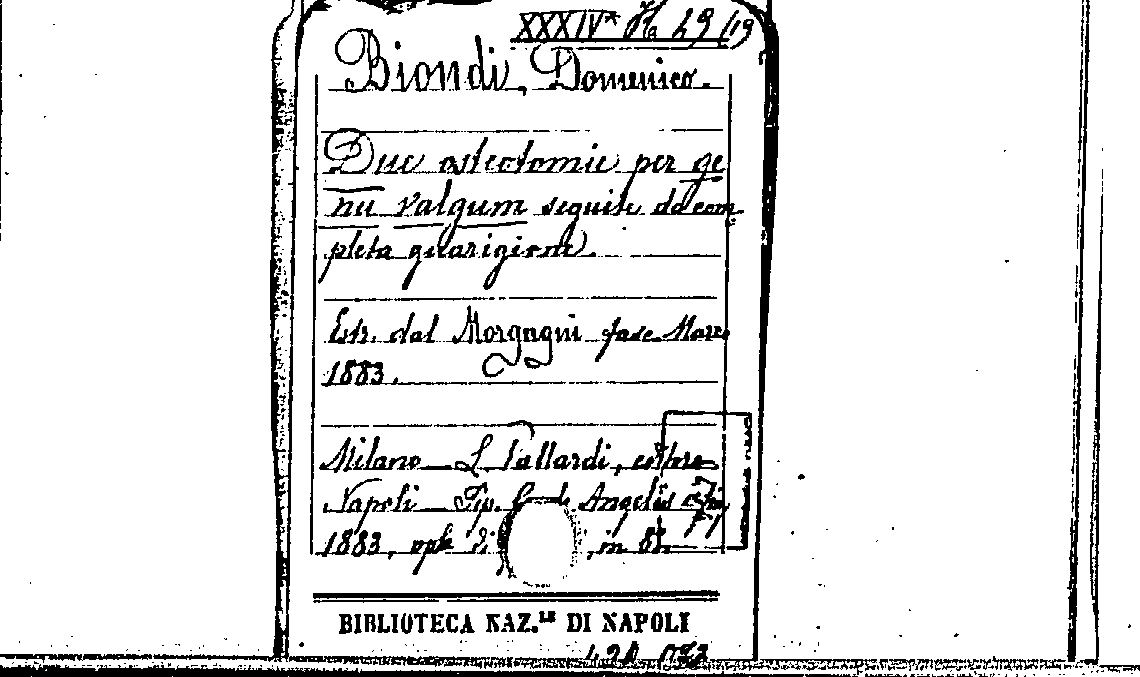 XXXIV* Ha 29 (19
Biondi, Domenico.
Due osteotomie per ge
nu valgum seguite da com
pleta guarigione.
Estr. dal Morgagni fasc. Marzo
1883.
Milano L Vallardi,
Napoli Tip. Angelis
1883, in 8º.
BIBLIOTECA NAZ.LE DI NAPOLI